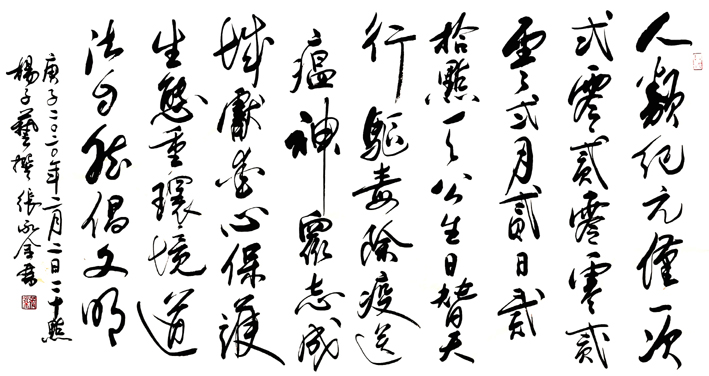 人類紀元僅一次
弍零貳零零貳
零弍月貳日貳
拾點天公生日替天
行驅毒除疫送
瘟神眾志成
城獻愛心保護
生態重環境道
法自然倡文明
庚子二〇二〇年二月二日二十點
楊子藝撰張永全書